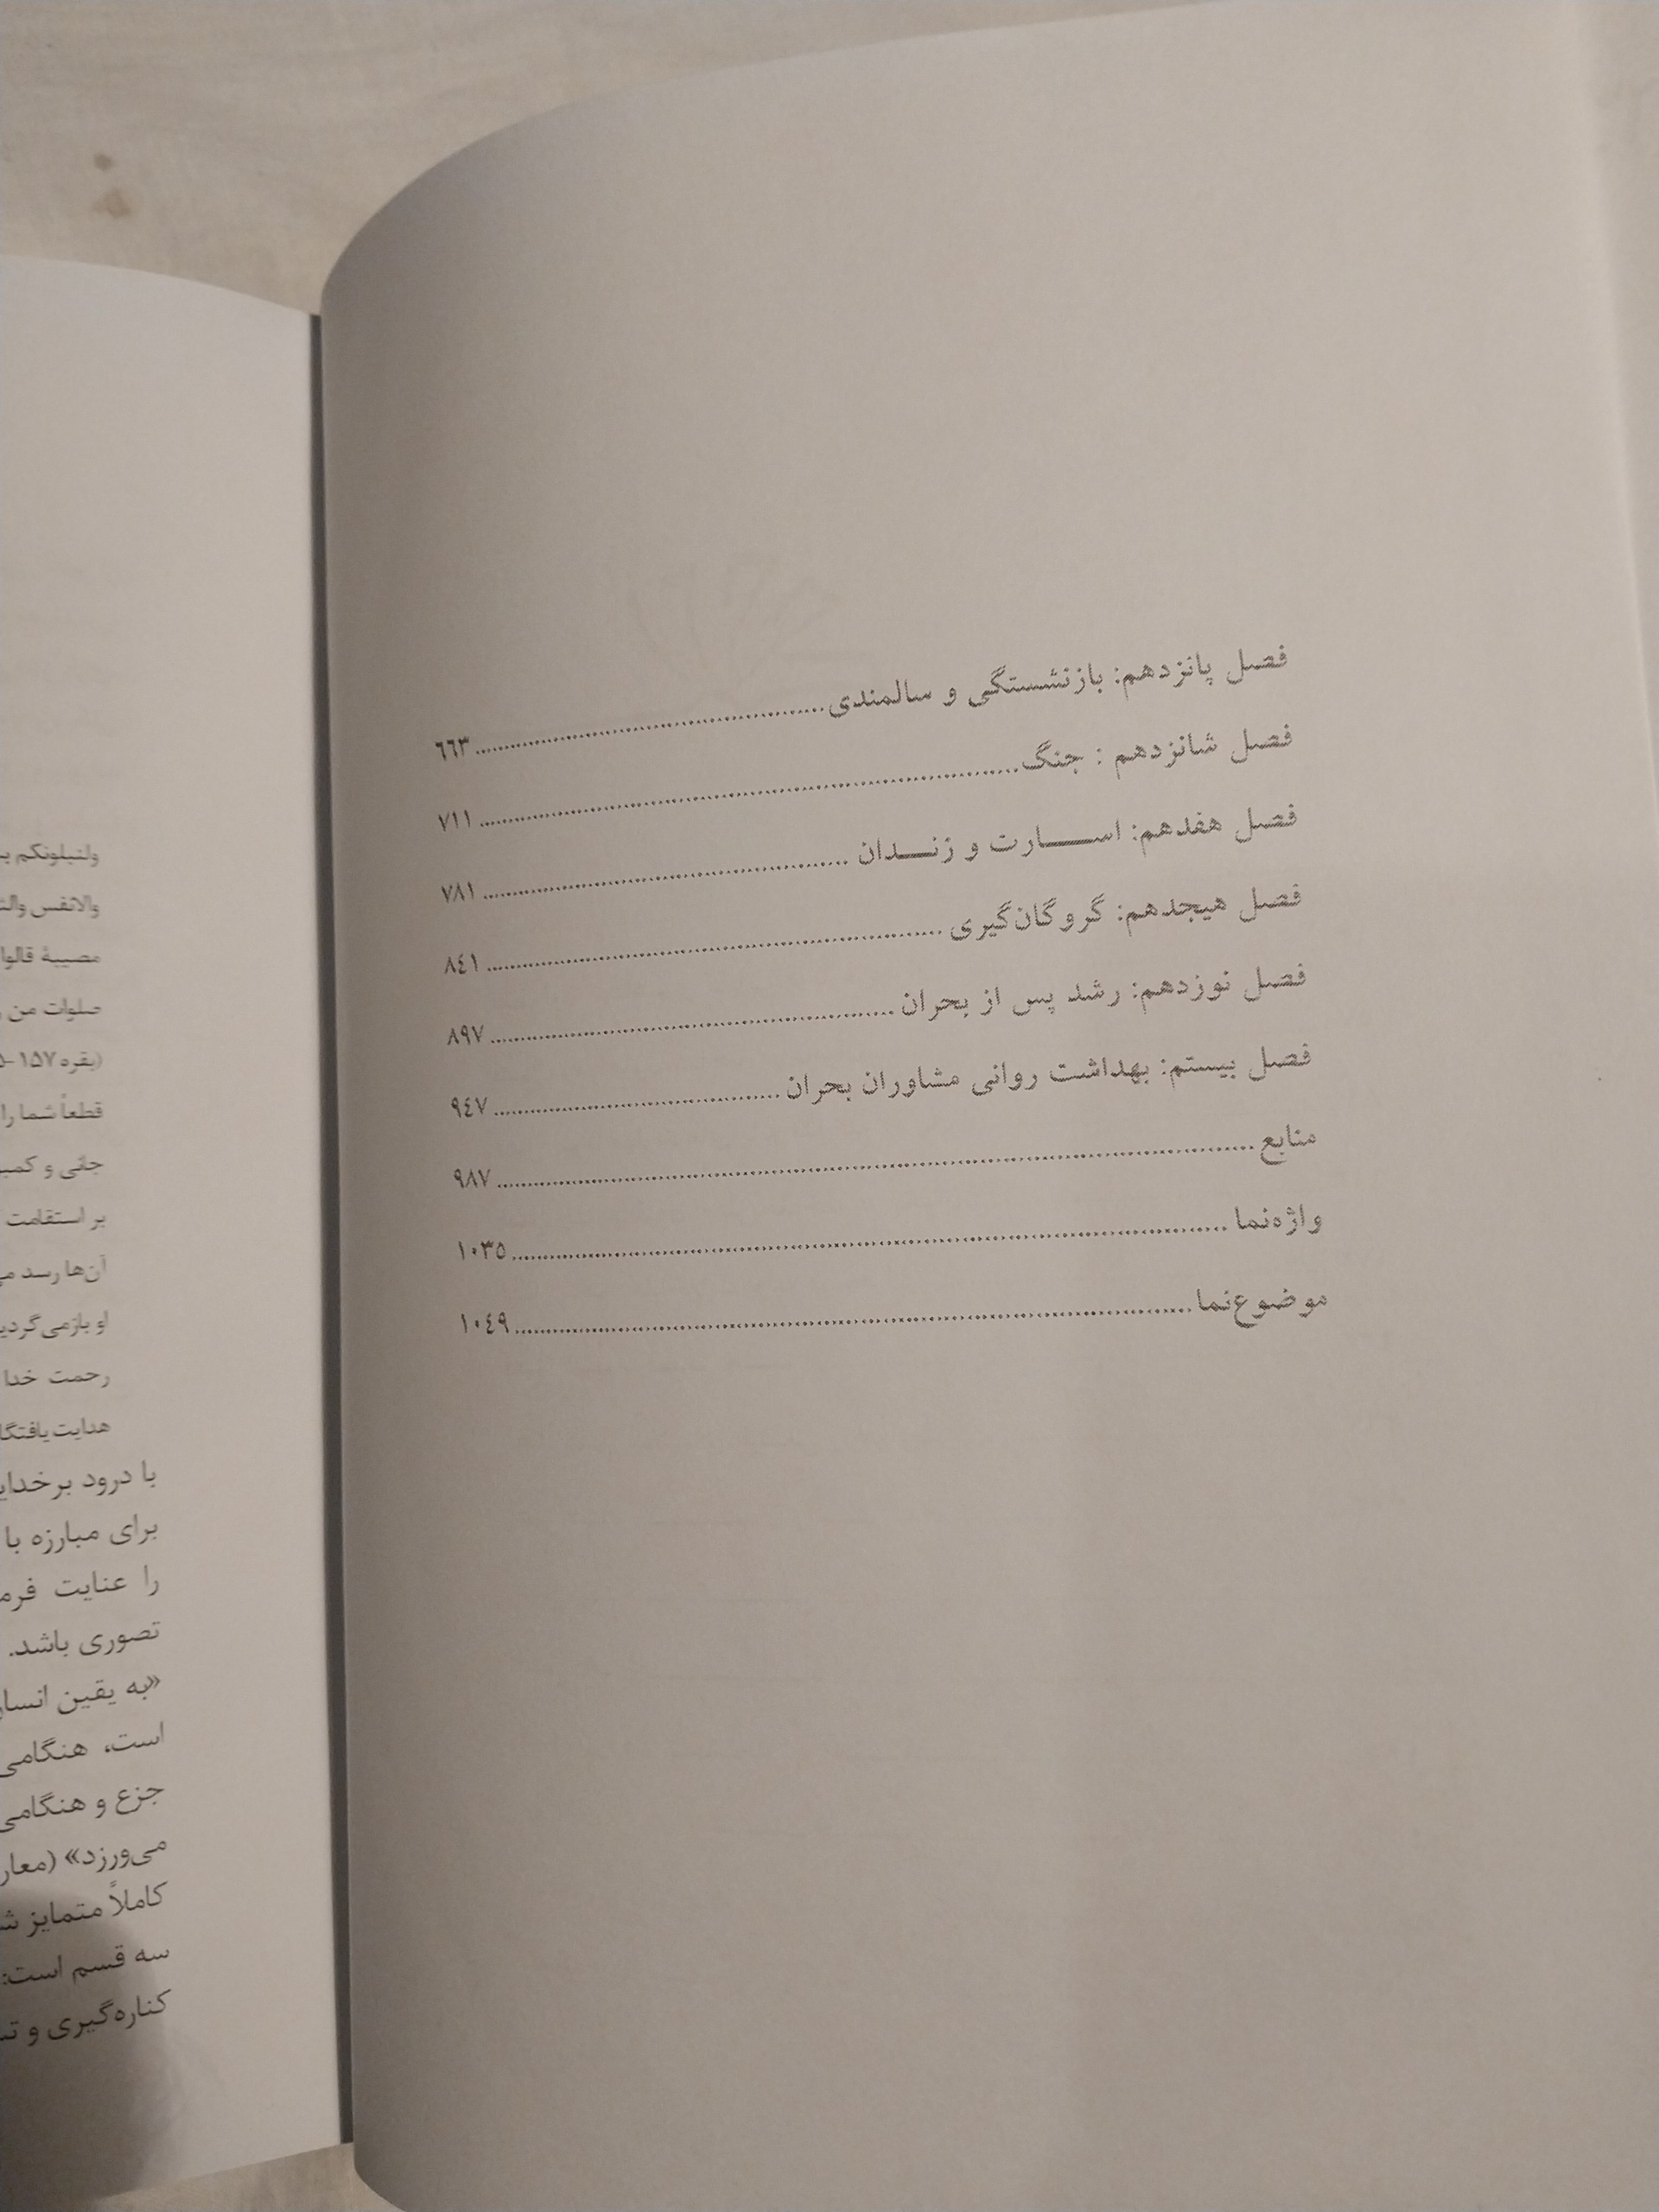 فصل پانزدهم: بازنشستگی و سالمندی ............ ٦٦٣
فصل شانزدهم : جنگ ............ ٧١١
فصل هفدهم: اســـــارت و زنـــدان ............ ٧٨١
فصل هیجدهم: گروگان‌گیری ............ ٨٤١
فصل نوزدهم: رشد پس از بحران ............ ٨٩٧
فصل بیستم: بهداشت روانی مشاوران بحران ............ ٩٤٧
منابع ............ ٩٨٧
واژه‌نما ............ ١٠٣٥
موضوع‌نما ............ ١٠٤٩
ولنبلونکم
والانفس
مصیبة قالوا
صلوات من
(بقره ۱۵۷
قطعاً شما را
جانی و
بر استقامت
آن‌ها رسد
او بازمی‌گردیم
رحمت خدا
با درود بر
برای مبارزه با
را عنایت
تصوری باشد.
«به یقین
است، هنگامی
جزع و هنگامی
می‌ورزد»
کاملاً متمایز
سه قسم است:
کناره‌گیری و